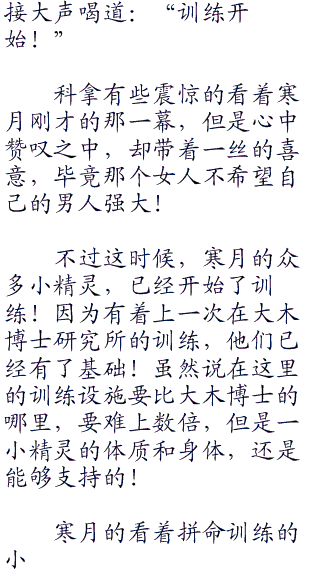 接大声喝道：“训练开
始！”
科拿有些震惊的看着寒
月刚才的那一幕，但是心中
赞叹之中，却带着一丝的喜
意，毕竟那个女人不希望自
己的男人强大！
不过这时候，寒月的众
多小精灵，已经开始了训
练！因为有着上一次在大木
博士研究所的训练，他们已
经有了基础！虽然说在这里
的训练设施要比大木博士的
哪里，要难上数倍，但是一
小精灵的体质和身体，还是
能够支持的！
寒月的看着拼命训练的
小